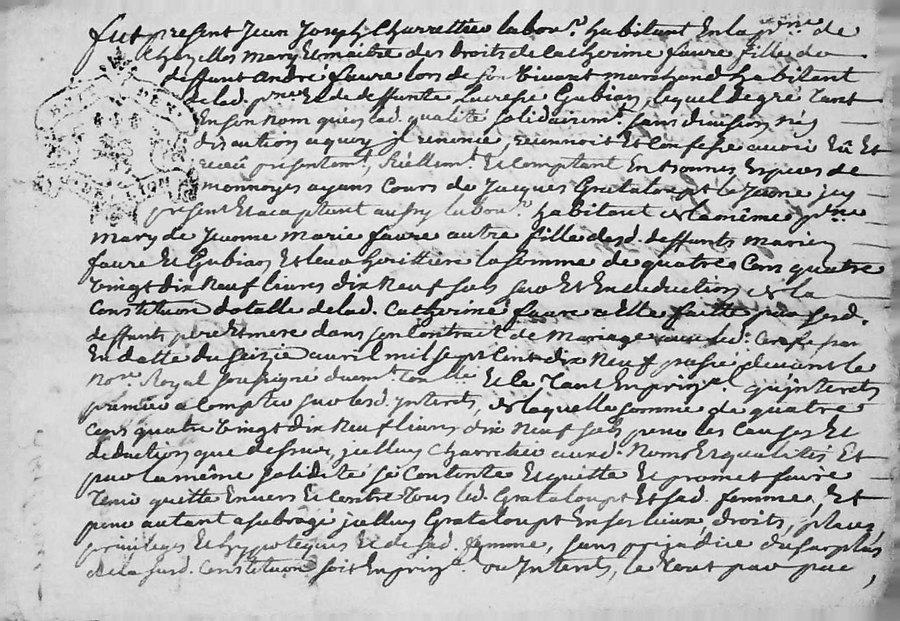 fut present Jean Joseph Charrettier labor. habitant En la p.sse de
Chazelles mary Et maitre des droits de Catherine faure fille de
deffunt André faure lors de son Vivant marchand habitant
de lad. p.sse Et de deffunte Lucresse Gubian, lequel de gré tant
En son nom qu'en lad. qualité solidairemt. sans division ny
discution a quoy il renonce, reconnoit Et Confesse avoir Eû Et
receû presentemt, Réellemt. Et Comptant En bonnes Especes de
monnoyes ayans Cours de Jacques Grataloupt le Jeune icy
present Et acceptant aussy labor. habitant de la même p.sse
mary de Jeanne Marie faure autre fille desd. deffunts mariés
faure Et Gubian Et leur heritiere la somme de quatre Cens quatre
Vingt dix Neuf livres dix Neuf sols sur Et En deduction de la
Constitution dotalle de lad. Catherine faure a Elle faitte par sesd.
deffunts pere Et mere dans son Contrait de Mariage avec led. Confessant
En datte du seizie avril mil sept Cent dix Neuf passé devant le
Nore. Royal soussigné duemt. Conllé Et Ce tant En prinpal. qu'interets
premier a Compter sur lesd. Interets, de laquelle somme de quatre
Cens quatre Vingt dix Neuf livres dix Neuf sols pour les Causes Et
deduction que dessus, icelluy Charretier auxd. Noms Et qualités Et
par la même solidité se Contente Et quitte Et promet faire
tenir quitte Envers Et Contre tous led. Grataloupt Et sad. femme, Et
pour autant a subrogé icelluy Grataloupt En ses lieux, droits, places
privileges Et hypoteques Et de sad. femme, sans prejudice du surplus
de la susd. Constitution soit En prinpal. ou Interets, le tout par pac